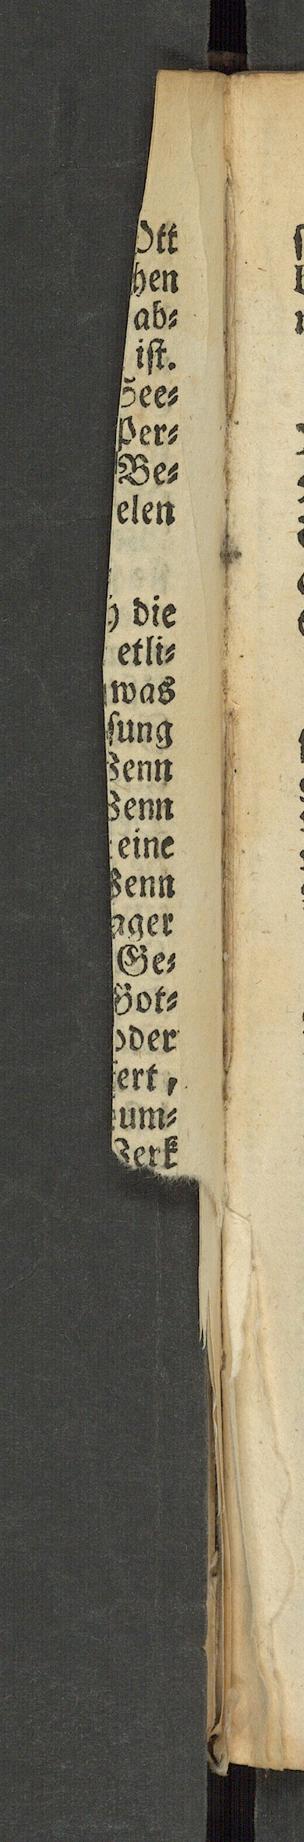 Ott
hen
ab⸗
ist.
See⸗
Per⸗
Be⸗
elen
die
etli⸗
was
sung
Wenn
Wenn
eine
Wenn
ager
Ge⸗
Got⸗
oder
ert,
um⸗
Werk